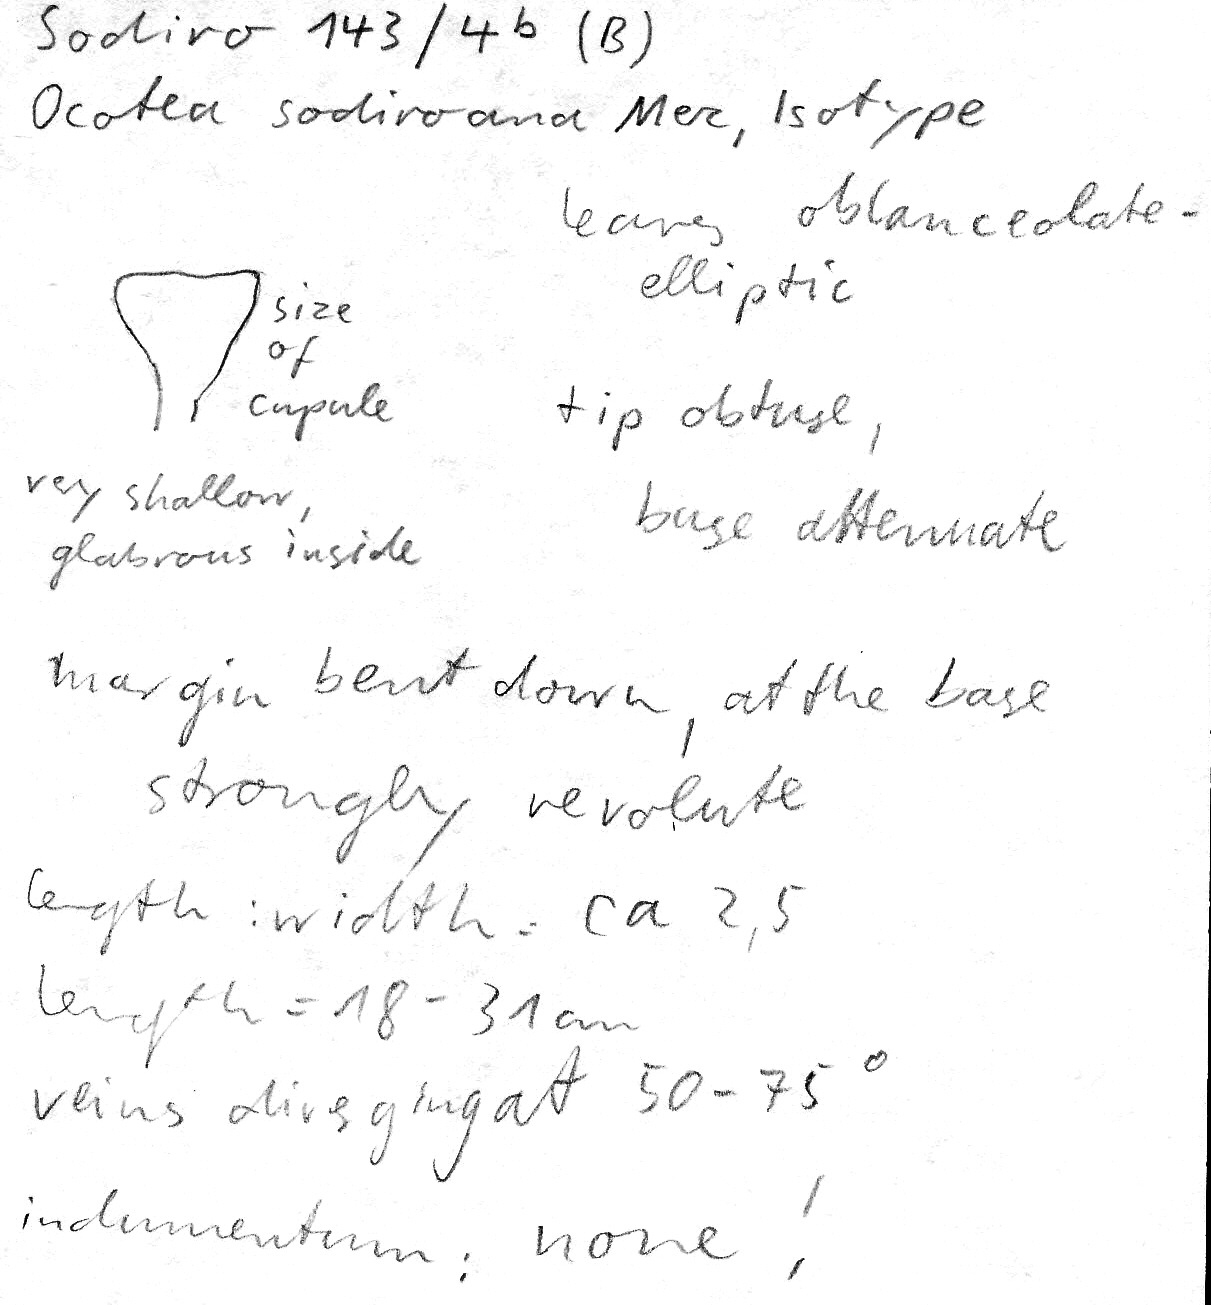 Sodiro 143/4b (B)
Ocotea sodiroana Mez, Isotype
leaves oblanceolate-
elliptic
size
of
cupule
tip obtuse,
very shallow,
glabrous inside
base attenuate
margin bent down, at the base
strongly revolute
length : width = ca 2,5
length = 18 - 31 cm
veins diverging at 50 - 75°
indumentum : none !